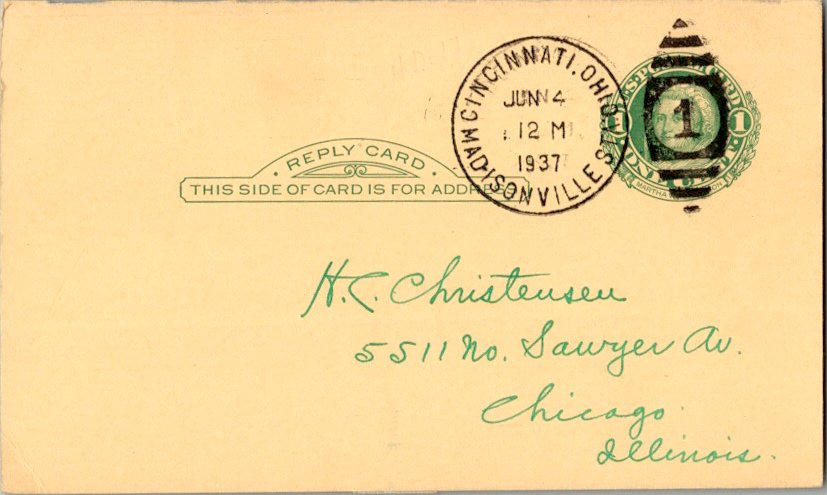 CINCINNATI, OHIO
MADISONVILLE STA.
JUN 4
12 M
1937
1
1 1
MARTHA
REPLY CARD
THIS SIDE OF CARD IS FOR ADDRESS
H. C. Christensen
5511 No. Sawyer Av.
Chicago
Illinois.